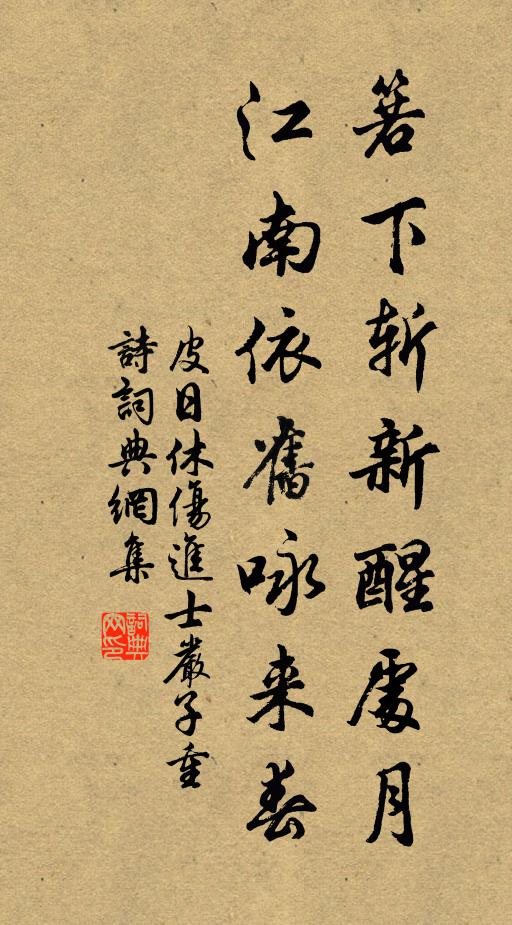 箬下斬新醒處月
江南依舊咏来春
皮日休傷進士嚴子重
詩詞典網集
詞典網印